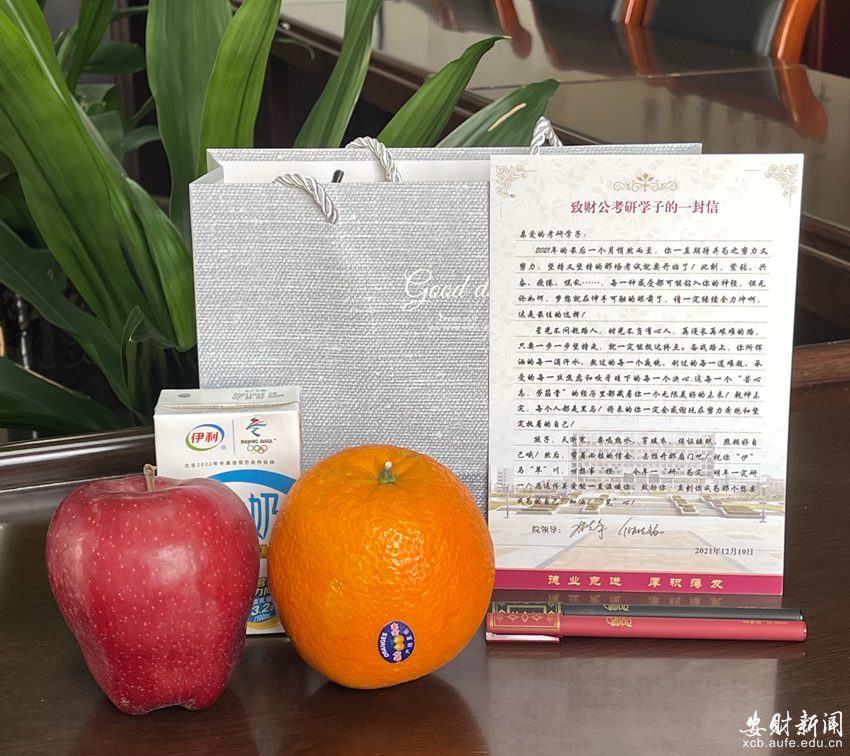 Good d
致财公考研学子的一封信
亲爱的考研学子：
2021年的最后一个月悄然而至，你一直期待并为之努力又
努力、坚持又坚持的那场考试就要开始了！此刻，紧张、兴
奋、疲倦、慌乱……，每一种感受都可能钻入你的神经，但无
论如何，梦想就在伸手可触的眼前了，请一定继续全力冲啊，
这是最佳的选择！
星光不问赶路人，时光不负有心人，再漫长再艰难的路，
只要一步一步坚持走，就一定能抵达终点。备战路上，你所挥
洒的每一滴汗水、熬过的每一个夜晚、刷过的每一道难题、承
受的每一丝焦虑和咬牙暗下的每一个决心，这每一个“苦心
志，劳筋骨”的经历里都载着你一个无限美好的未来！乾坤未
定，每个人都是黑马！将来的你一定会感谢现在努力奔跑和坚
定执着的自己！
孩子，天渐寒，要喝热水，宜暖衣，保证睡眠，照顾好自
己哦！然后，
去推开那扇门吧！祝你“伊”
马“苹”川，
“橙”
年一“研”为定，明年一定研
院领导：
2021年12月10日
德业竞进 厚积薄发
伊利
BEIJING 2022
北京2022年冬奥会官方合作伙伴
奶
3.2
ORANGES
安财新闻
xcb.aufe.edu.cn